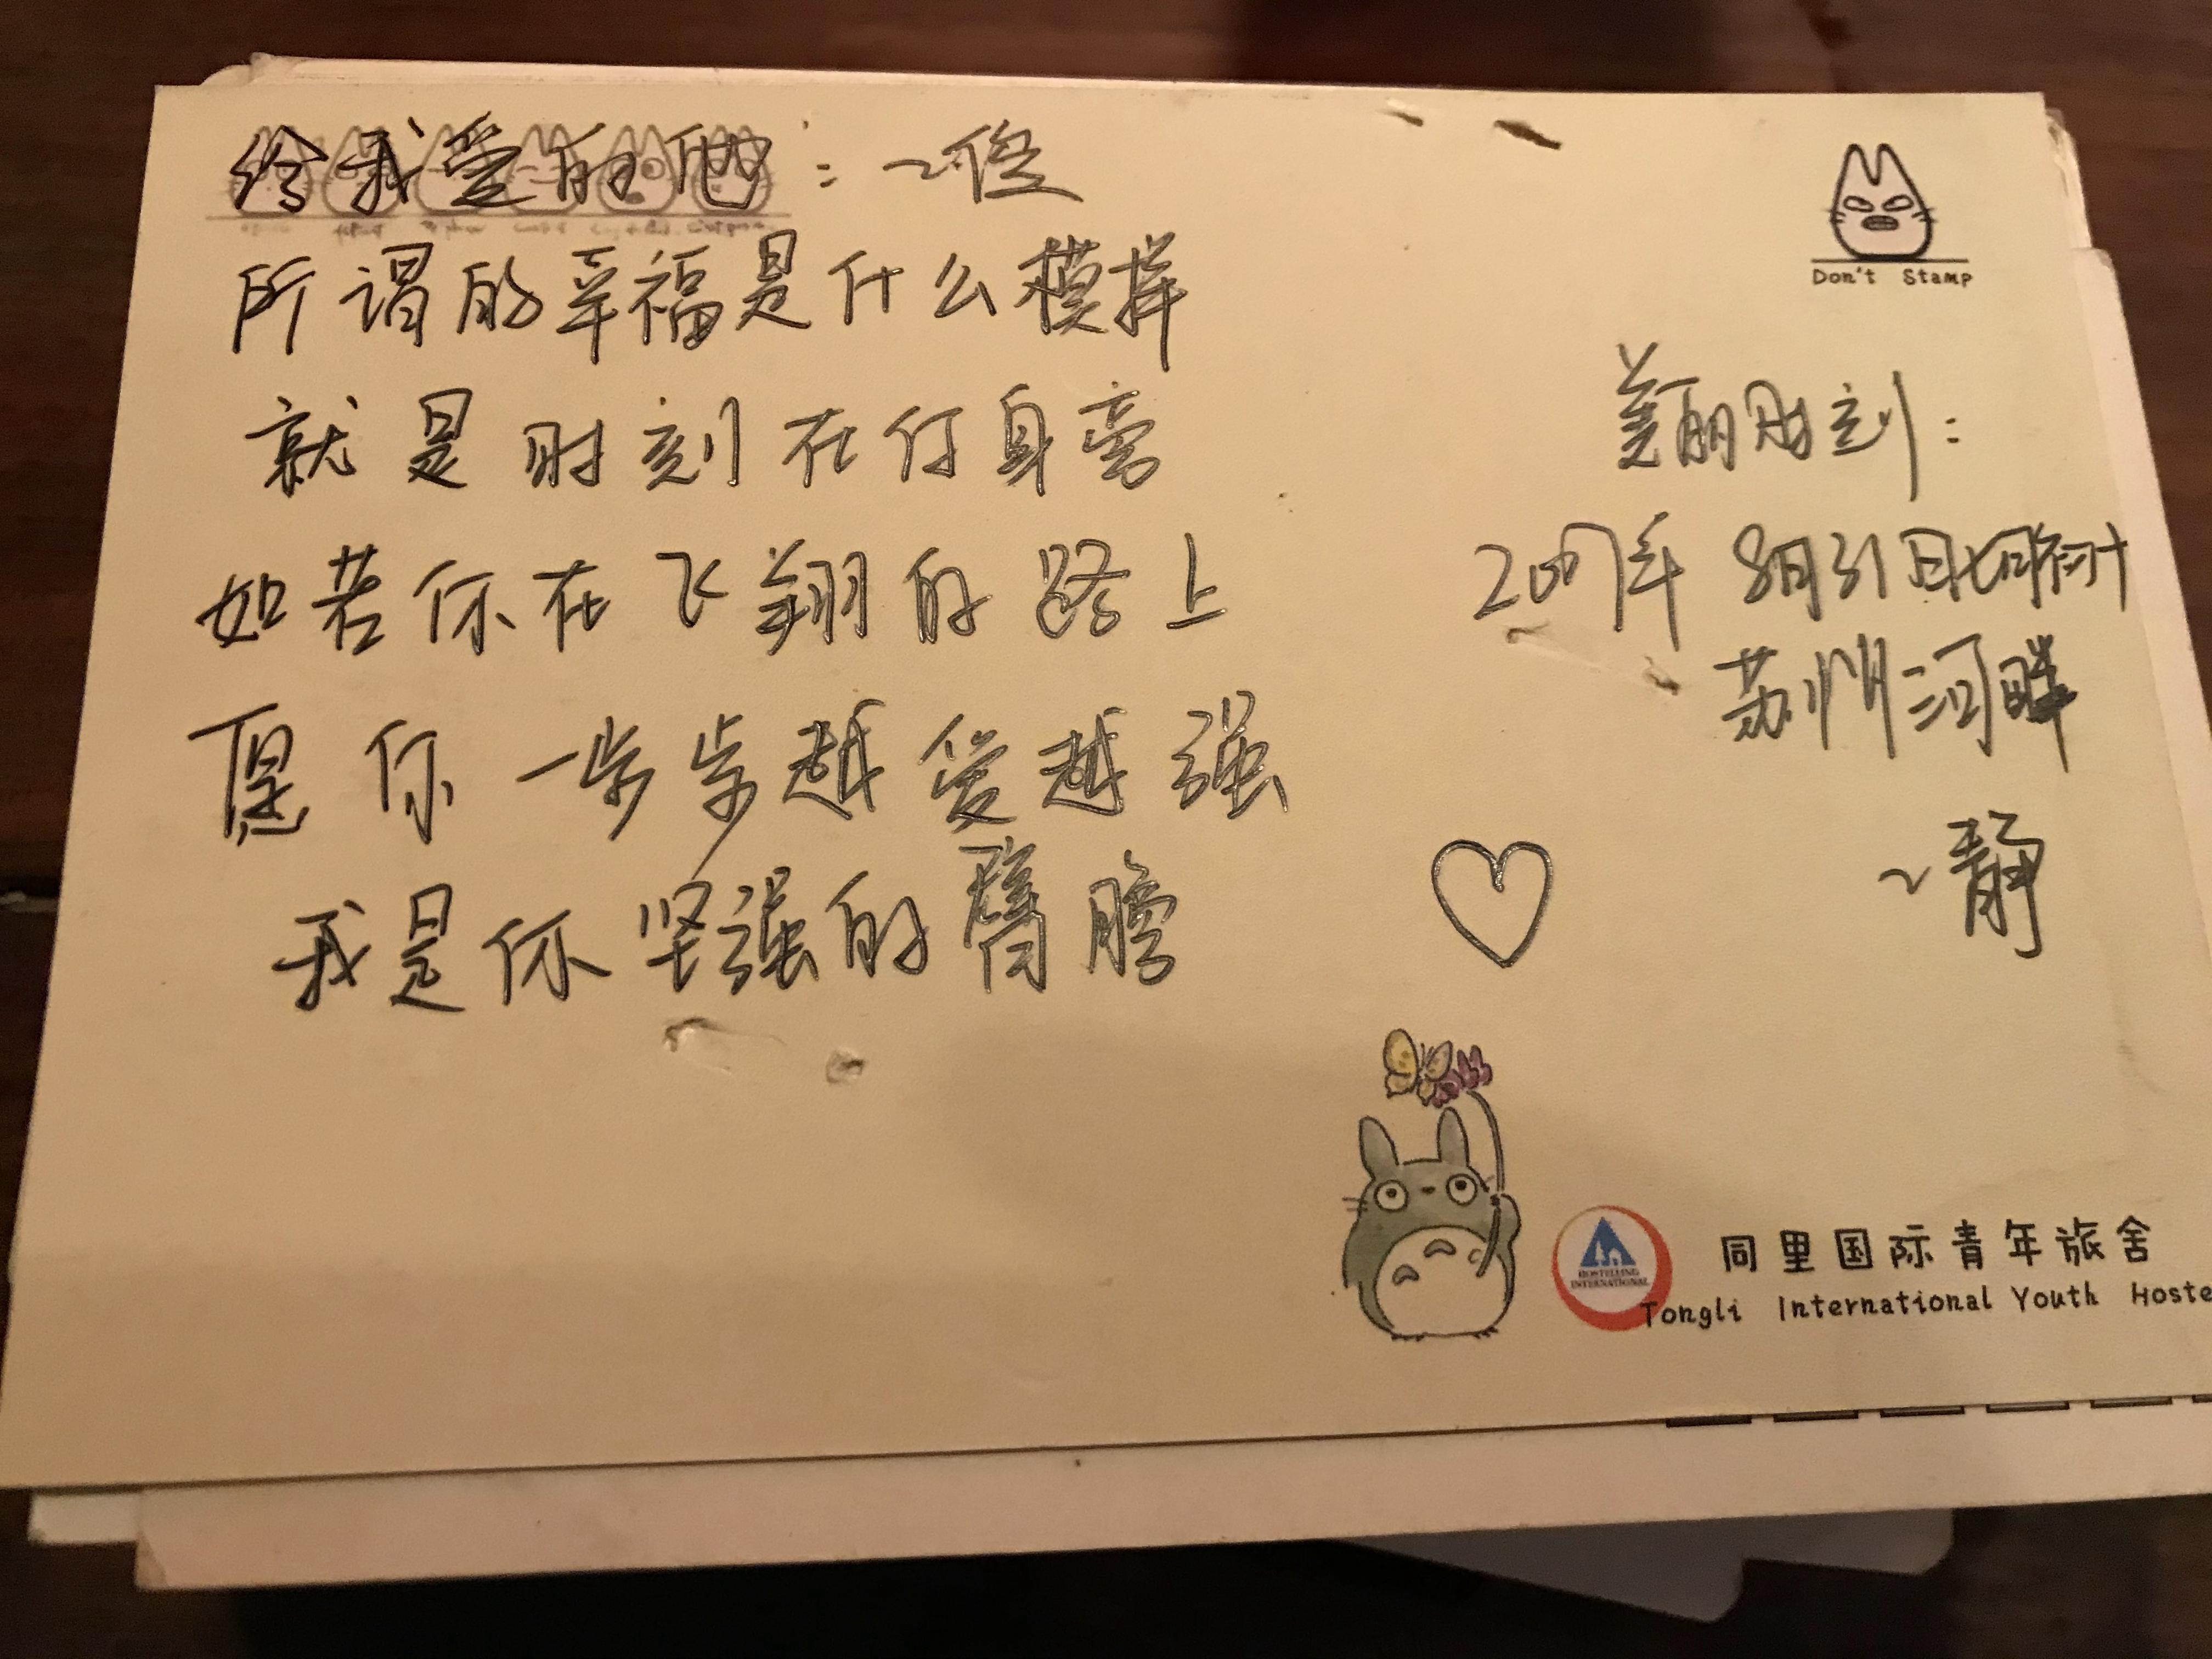 给我爱的他：~俊
所谓的幸福是什么模样
就是时刻在你身旁
如若你在飞翔的路上
愿你一步步越发越强
我是你坚强的臂膀
Don't Stamp
美丽时刻：
2007年 8月31日
苏州河畔
~静
HOSTELLING
INTERNATIONAL
同里国际青年旅舍
Tongli International Youth Hoste